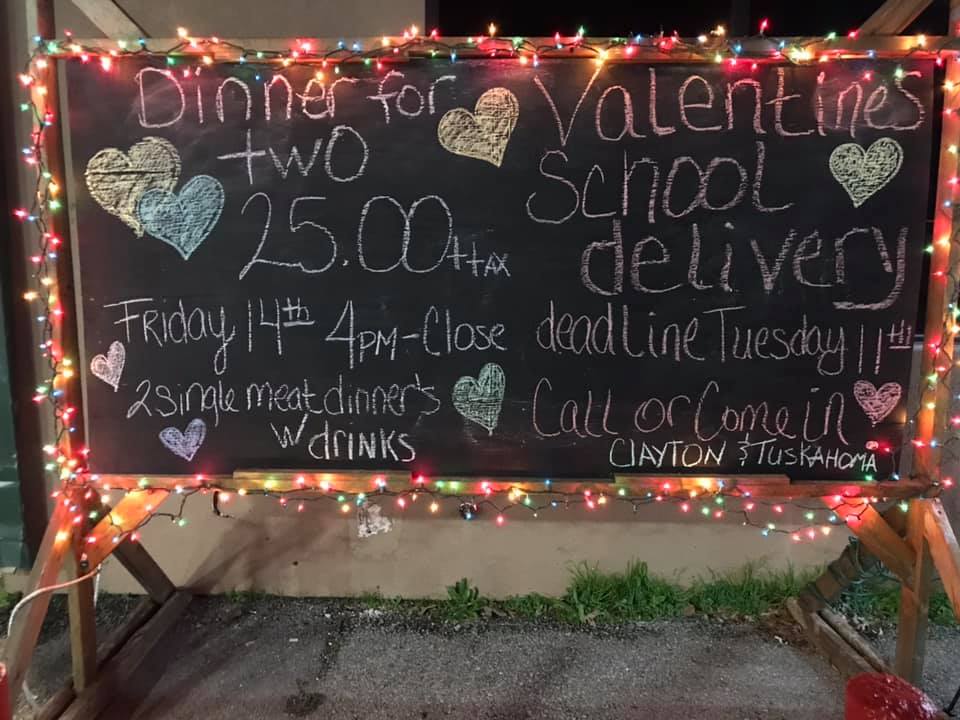 Dinner for
two
25.00 + tAX
Friday 14th 4PM-Close
2 single meat dinner's
W drinks
Valentines
School
delivery
deadline Tuesday 11th!
Call or Come in
CLAYTON & TUSKAHOMA